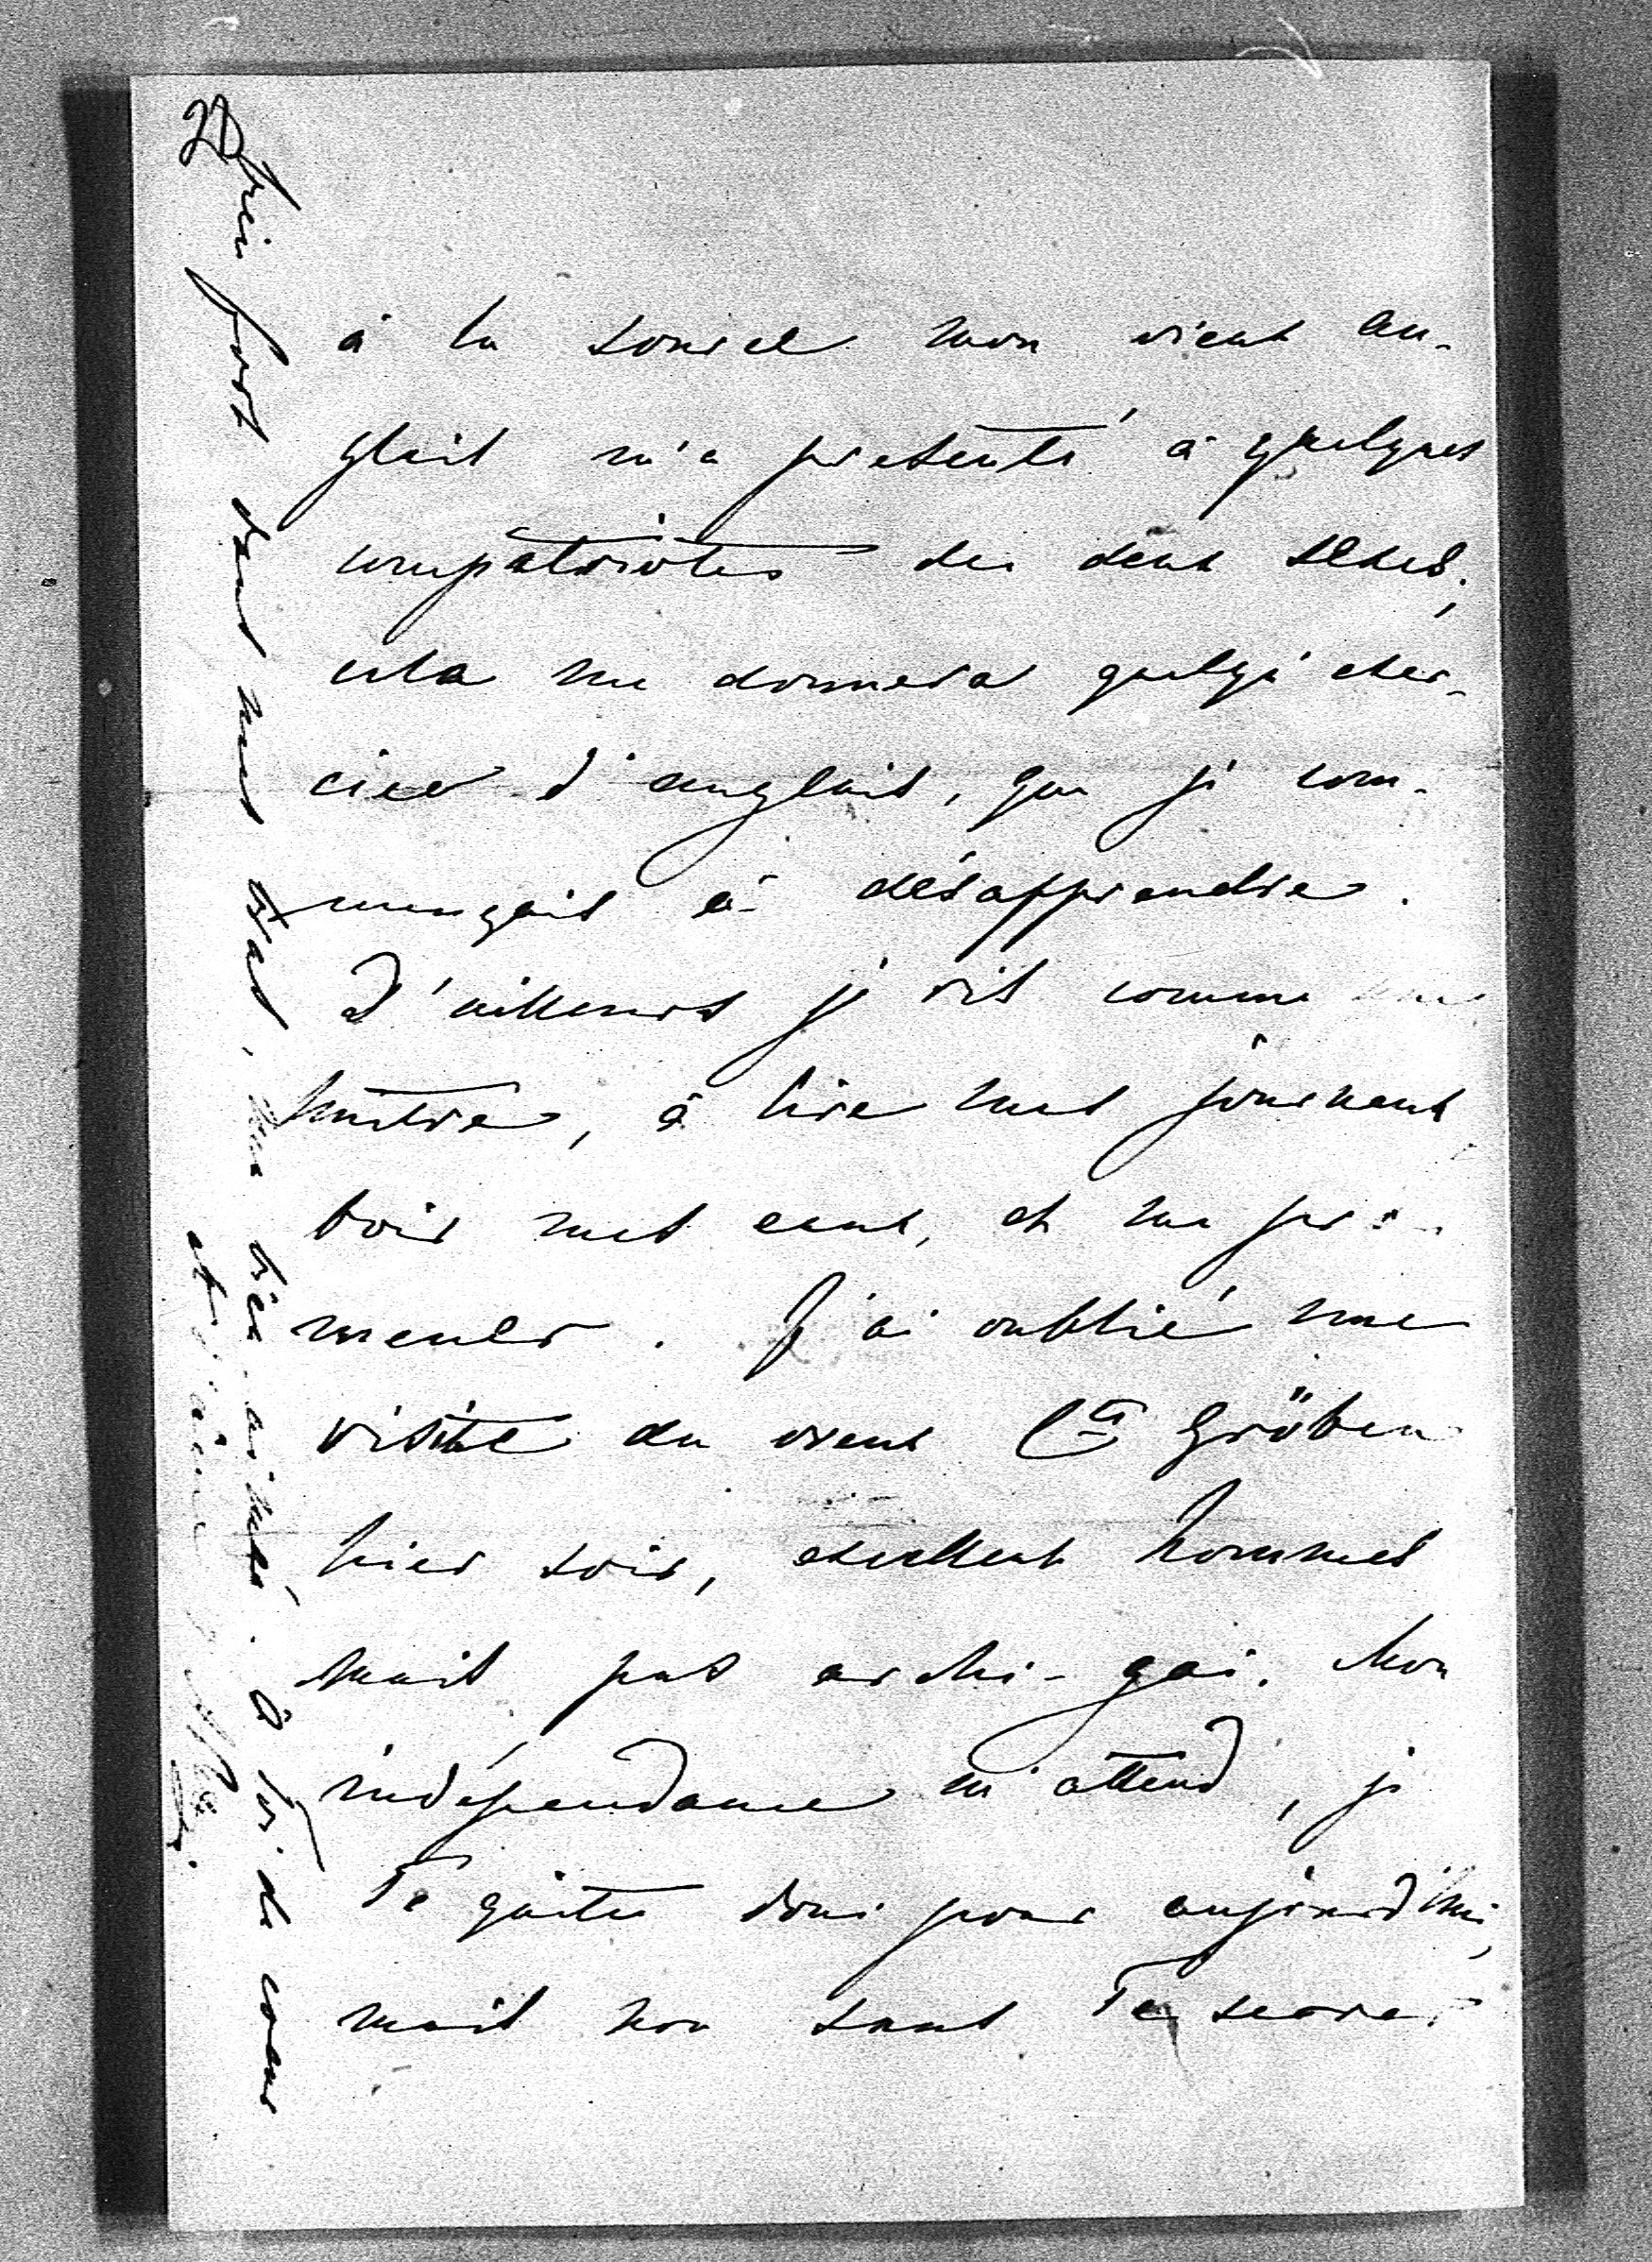 à la source mon vieux An-
glais m'a présenté à quelques
compatriotes des deux sexes,
cela me donnera quelqu' exer-
cice d'anglais, que je com-
mençais à désapprendre.
D'ailleurs je vis comme une
huître, à lire mes journaux
bois mes eaux, et me pro-
mener. J'ai oublié une
visite du vieux Cte Gröben
hier soir, excellent homme
mais pas archi-gai. Mon
indépendance m'attend, je
Te quitte donc pour aujourd'hui,
mais non sans Te serrer
bien fort dans mes bras, mon bien-aimé. À Toi de coeur
et d'âme